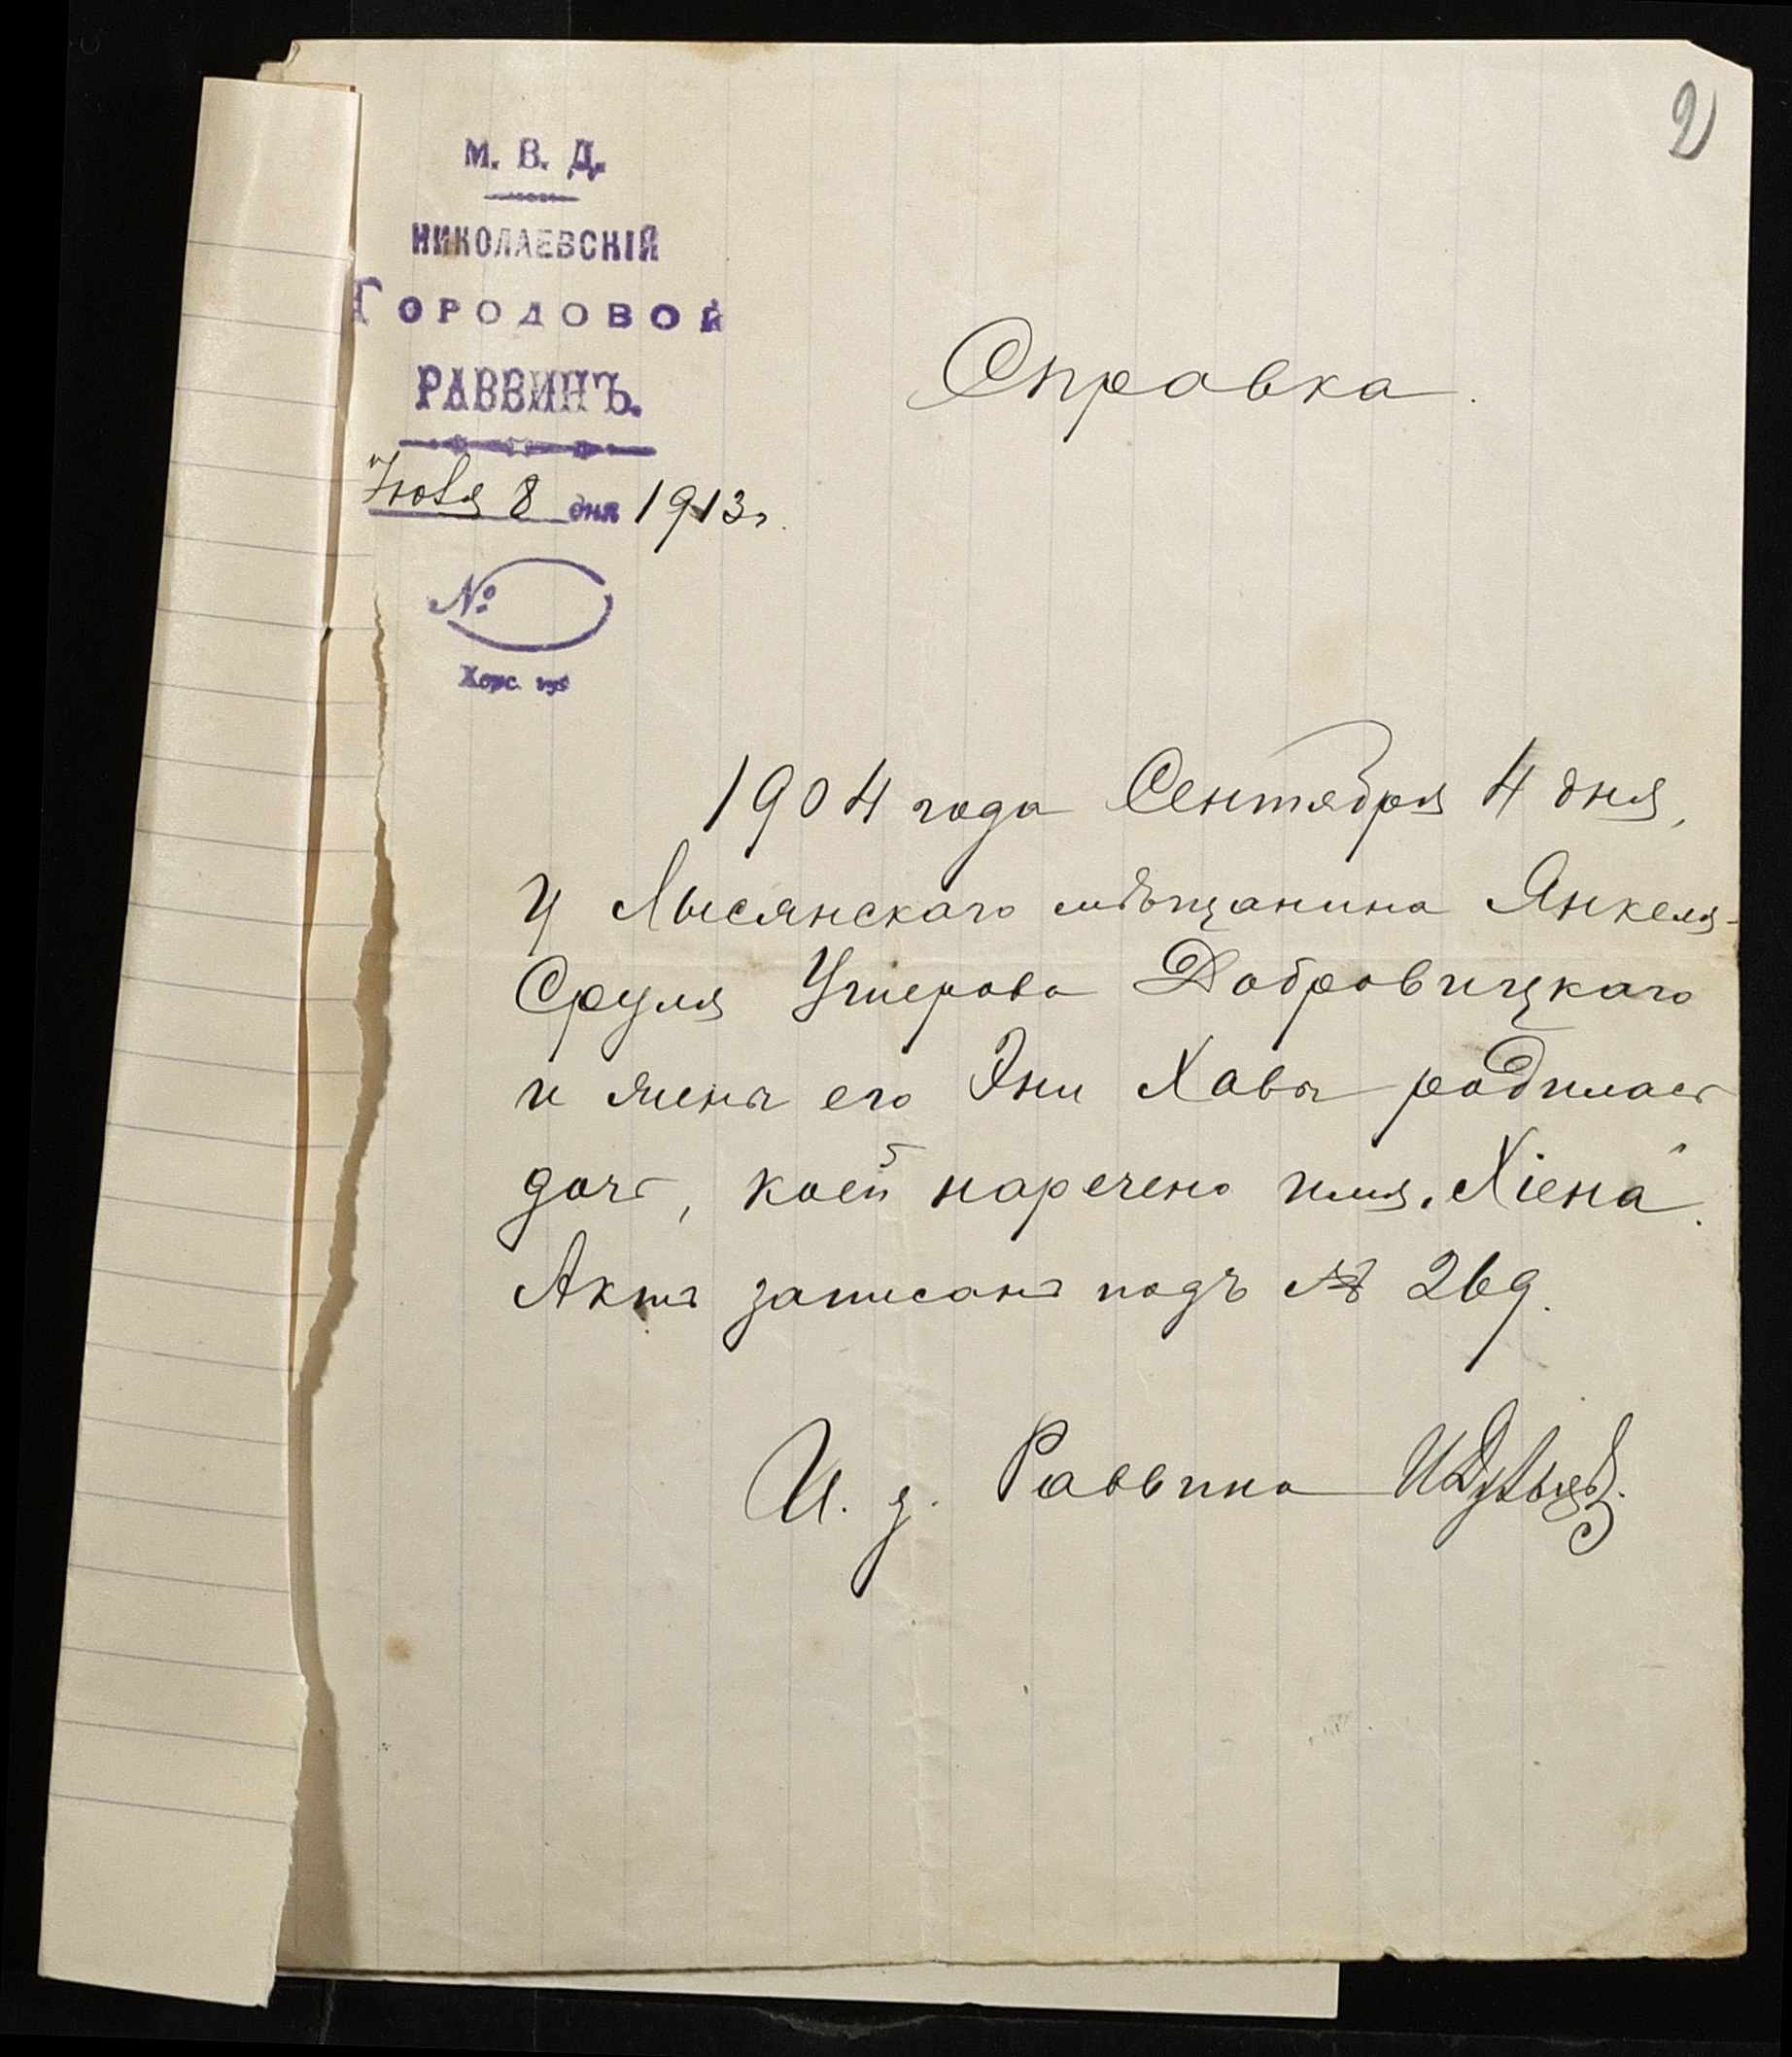 2
М. В. Д.
НИКОЛАЕВСКІЙ
ГОРОДОВОЙ
РАВВИНЪ.
8 дня 1913 г.
№
Херс. губ
Справка.
1904 года Сентября 4 дня,
У Лысянскаго мѣщанина Янкеля-
Сруля Ушерова Добровицкаго
и жены его Эни Хавы родилась
дочь, коей наречено имя „Хіена“.
Актъ записанъ подъ № 269.
И. д. Раввина